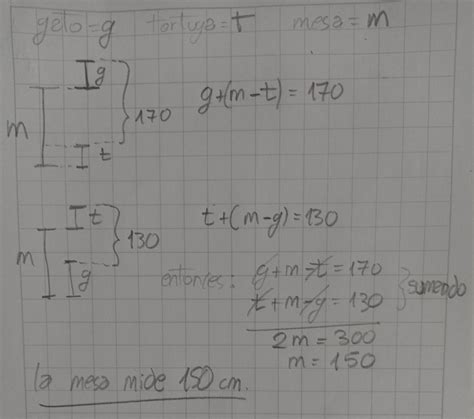 gato = g tortuga = t mesa = m
g
m 170 g+(m-t) = 170
t
t t+(m-g) = 130
m 130
g entonces: g+m-t = 170
t+m-g = 130 sumando
2m = 300
m = 150
la mesa mide 150 cm.